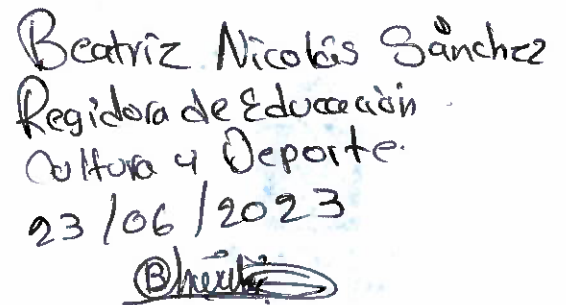 Beatriz Nicolás Sánchez
Regidora de Educación
Cultura y Deporte.
23/06/2023